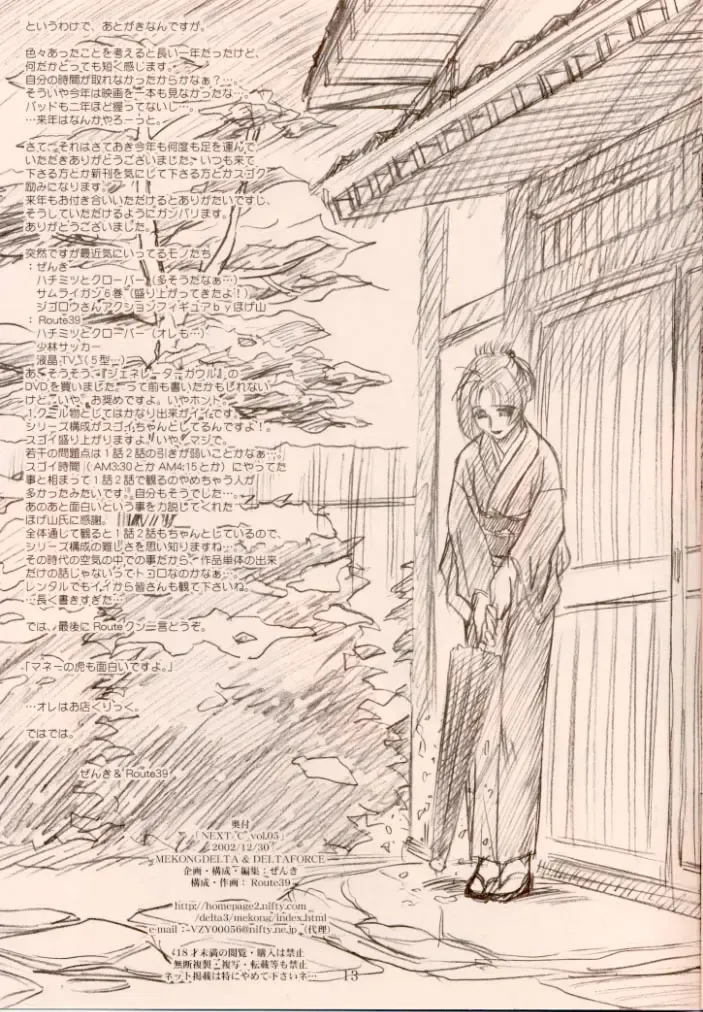 というわけで、あとがきなんですが。
色々あったことを考えると長い一年だったけど、
何だかとっても短く感じます。
自分の時間が取れなかったからかなぁ？…。
そういや今年は映画を一本も見なかったな…。
パッドも二年ほど握ってないし…。
…来年はなんかやろーっと。
さて、それはさておき今年も何度も足を運んで
いただきありがとうございました。いつも来て
下さる方とか新刊を気にして下さる方とかスゴク
励みになります。
来年もお付き合いいただけるとありがたいですし、
そうしていただけるようにガンバリます。
ありがとうございました。
突然ですが最近気にいってるモノたち
：ぜんき
ハチミツとクローバー（多そうだなぁ…）
サムライガン６巻（盛り上がってきたよ！）
ジゴロウさんアクションフィギュアｂｙほげ山
：Route39
ハチミツとクローバー（オレも…）
少林サッカー
液晶TV（５型…）
あ、そうそう、『ジェネレーターガウル』の
DVDを買いました。って前も書いたかもしれない
けど、いや、お奨めですよ。いやホント。
１クール物としてはかなり出来がイイです。
シリーズ構成がスゴイちゃんとしてるんですよ！。
スゴイ盛り上がりますよ。いや、マジで。
若干の問題点は１話２話の引きが弱いことかなぁ…。
スゴイ時間（AM3:30とかAM4:15とか）にやってた
事と相まって１話２話で観るのやめちゃう人が
多かったみたいです。自分もそうでした…。
あのあと面白いという事を力説してくれた
ほげ山氏に感謝。
全体通して観ると１話２話もちゃんとしているので、
シリーズ構成の難しさを思い知りますね…。
その時代の空気の中での事だから、作品単体の出来
だけの話じゃないってトコロなのかなぁ…。
レンタルでもイイから皆さんも観て下さいね。
…長く書きすぎた…
では、最後にRouteクン一言どうぞ。
「マネーの虎も面白いですよ。」
…オレはお店くりっく。
ではでは。
ぜんき＆Route39
奥付
「NEXT "C" vol.05」
2002/12/30
MEKONGDELTA & DELTAFORCE
企画・構成・編集：ぜんき
構成・作画：Route39
http://homepage2.nifty.com
/delta3/mekong/index.html
e-mail：VZY00056@nifty.ne.jp（代理）
18才未満の閲覧・購入は禁止
無断複製・複写・転載等も禁止
ネット掲載は特にやめて下さいネ…
13